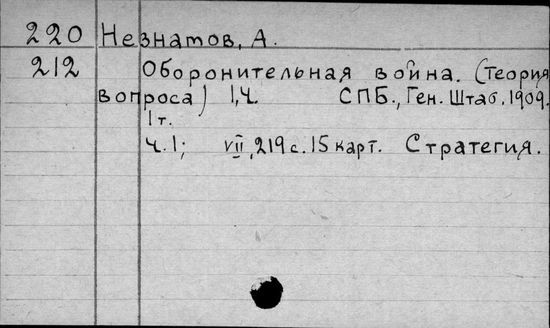 220 Незнатов, А.
212 Оборонительная война. (Теория
вопроса) I, ч. СПБ., Ген. Штаб, 1909.
1 т.
ч. 1; VII, 219 с. 15 карт. Стратегия.